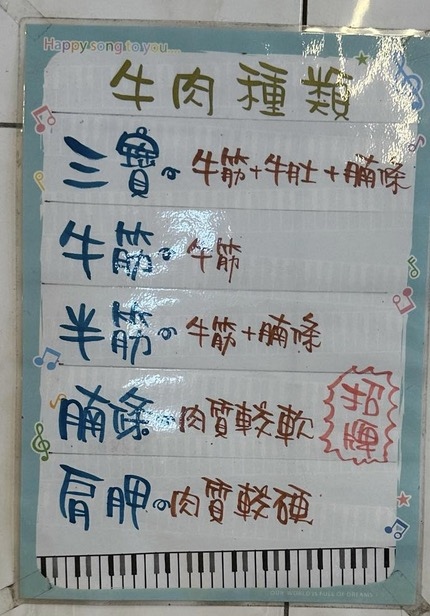 Happy song to you....
牛肉種類
三寶。牛筋+牛肚+腩條
牛筋。牛筋
半筋。牛筋+腩條
腩條。肉質較軟
招牌
肩胛。肉質較硬
OUR WORLD IS FULL OF DREAMS